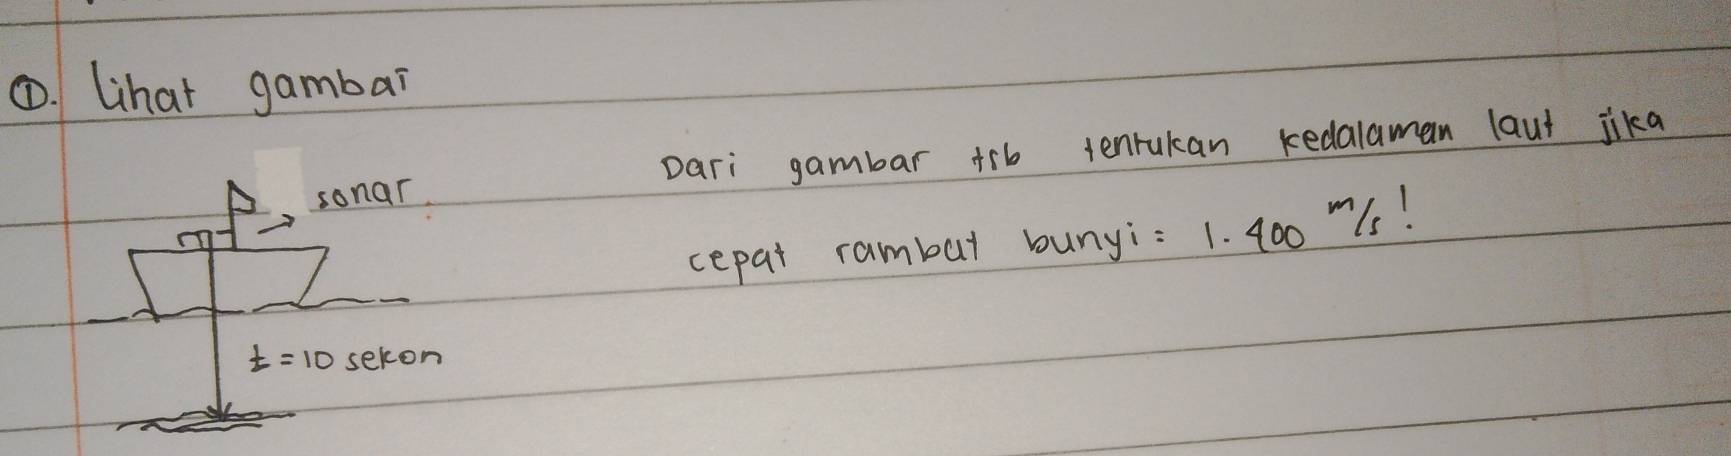 ①. Lihat gambar
sonar
Dari gambar tsb tentukan kedalaman laut jika
cepat rambat bunyi = 1.400 m/s!
t = 10 sekon